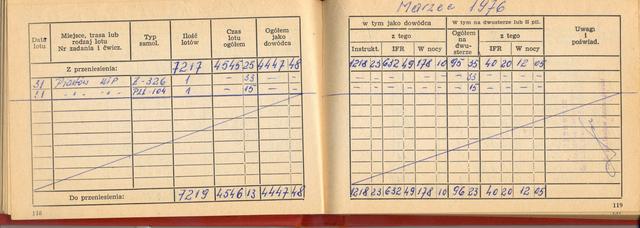 Marzec 1976
Data lotu
Miejsce, trasa lub rodzaj lotu Nr zadania i ćwicz.
Typ samol.
Ilość lotów
Czas lotu ogółem
Ogółem jako dowódca
w tym jako dowódca
W tym na dwusterze lub II pil.
z tego
Ogółem na dwusterze
z tego
Uwagi i poświad.
Instrukt.
IFR
W nocy
IFR
W nocy
Z przeniesienia: 7217 4545 25 4447 48 1218 23 632 49 178 10 95 35 40 20 12 05
31 1 — 33 — — — — — — — — — 33 — — — —
31 " " " PZL-104 1 — 15 — — — — — — — — — 15 — — — —
Do przeniesienia: 7219 4546 13 4447 48 1218 23 632 49 178 10 96 23 40 20 12 05
118
119